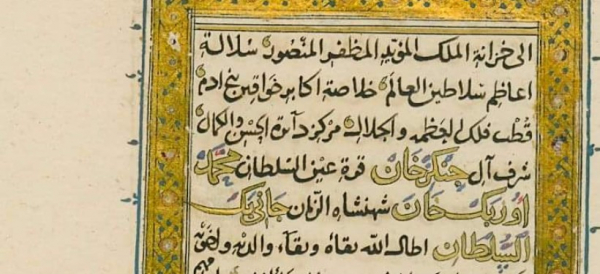 الى خزانة الملك المؤيد المظفر المنصور سلالة
اعاظم سلاطين العالم خلاصة اكابر خواقين بنى ادم
قطب فلك العظمه والجلالة مركز دآئرة الحسن والكمال
شرف آل جنكزخان قرة عين السلطان محمد
اوزبك خان شهنشاه الزمان جانى بك
السلطان اطال الله بقاه وبقاء والديه